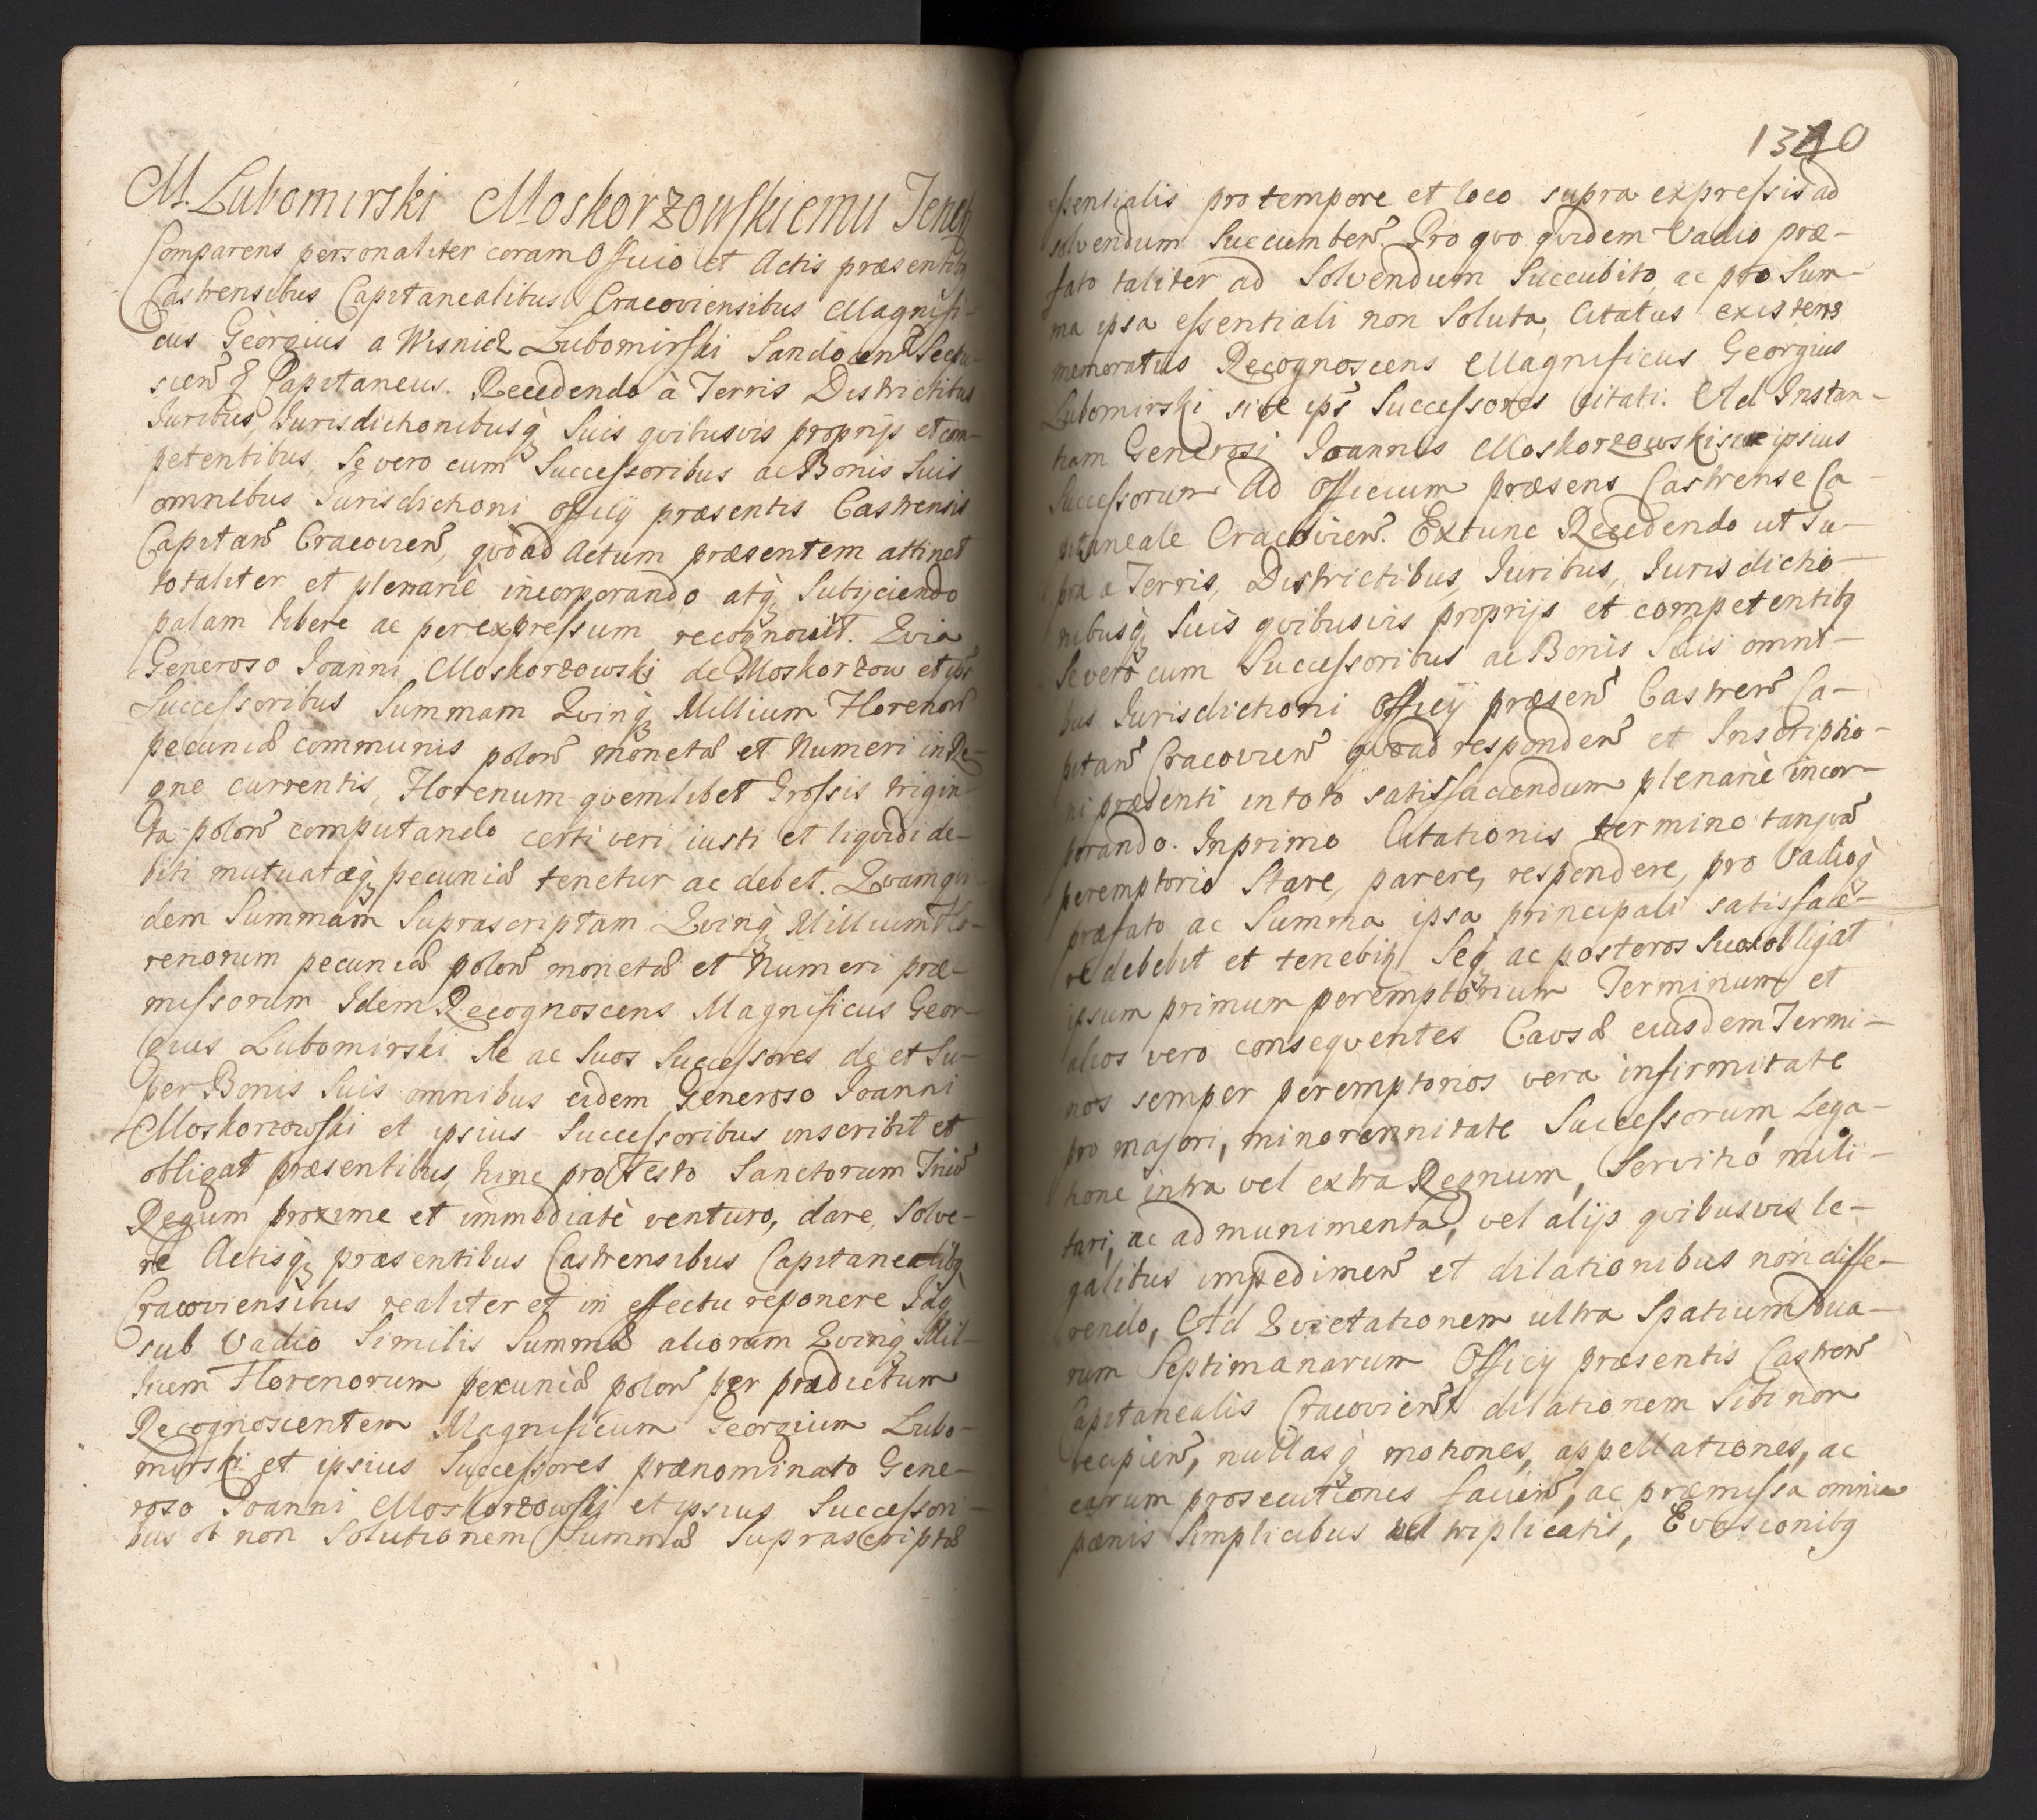 M. Lubomirski Moskorzowskiemu Teneb
Comparens personaliter coram Officio et Actis præsentibq
Castrensibus Capitanealibus Cracoviensibus Magnifi-
cus Georgius a Wisnicz Lubomirski Sandocen Secho-
sien q Capitaneus. Recedendo à Terris Districtibus
Iuribus, Iurisdictionibusq suis qvibusvis proprijs et com-
petentibus, Se vero cum Successoribus ac Bonis Suis
omnibus Iurisdictioni officij præsentis Castrensis
Capitan Cracovien, qvoad Actum præsentem attinet
totaliter et plenariè incorporando atq Subijciendo
palam libere ac per expressum recognovit. Qvia
Generoso Ioanni Moskorzowski de Moskorzow et ips
Successoribus Summam Qvinq Millium Florenor
pecuniæ communis polon monetæ et Numeri in Re-
gno currentis, Florenum qvemlibet Grossis trigin-
ta polon computando certi veri iusti et liqvidi de-
biti mutuatæq pecuniæ tenetur ac debet. Qvam qvi-
dem Summam Suprascriptam Qvinq Millium Flo-
renorum pecuniæ polon monetæ et Numeri præ-
missorum Idem Recognoscens Magnificus Geor-
gius Lubomirski Se ac Suos Successores de et Su-
per Bonis Suis omnibus eidem Generoso Ioanni
Moskorzowski et ipsius Successoribus inscribit et
obligat præsentibus, hinc pro Festo Sanctorum Triu
Regum proxime et immediatè venturo, dare, Solve-
re Actisq præsentibus Castrensibus Capitanealibq
Cracoviensibus realiter et in effectu reponere Idq
sub Vadio Similis Summæ aliorum Qvinq Mil-
lium Florenorum pecuniæ polon per prædictum
Recognoscentem Magnificum Georgium Lubo-
mirski et ipsius Successores prænominato Gene-
roso Ioanni Moskorzowski et ipsius Successori-
bus ob non Solutionem Summæ Suprascriptæ
1340
essentialis pro tempore et loco supra expressis ad
solvendum Succumben. Pro qvo qvidem Vadio præ-
fato taliter ad Solvendum Succubito, ac pro Sum-
ma ipsa essentiali non Soluta, Citatus existens
memoratus Recognoscens Magnificus Georgius
Lubomirski sive ips Successores Citati. Ad Instan-
tiam Generosi Ioannis Moskorzowski sive ipsius
Successorum Ad Officium præsens Castrense Ca-
pitaneale Cracovien. Extunc Recedendo ut Su-
pra a Terris, Districtibus, Iuribus, Iurisdictio-
nibusq Suis qvibusvis proprijs et competentibq
Se verò cum Successoribus ac Bonis Suis omni-
bus Iurisdictioni Officij præsen Castren Ca-
pitan Cracovien qvoad responden et Inscriptio-
ni præsenti in toto satisfaciendum plenariè incor-
porando. In primo Citationis termino tanqva
peremptorio Stare, parere, respondere, pro Vadioq
præfato ac Summa ipsa principali satisface-
re debebit et tenebit Seq ac posteros Suos obligat
ipsum primum peremptorium Terminum et
alios vero conseqventes Causæ eiusdem Termi-
nos semper peremptorios vera infirmitate
pro majori, minorennitate Successorum, Lega-
tione intra vel extra Regnum, Servitio mili-
tari, ac ad munimenta, vel alijs qvibusvis le-
galibus impedimen et dilationibus non diffe-
rendo, Ad Qvietationem ultra Spatium Dua-
rum Septimanarum Officij præsentis Castren
Capitanealis Cracovien dilationem Sibi non
recipien, nullasq motiones, appellationes, ac
earum prosecutiones facien, ac præmissa omnia
pænis Simplicibus vel triplicatis, Evasionibq